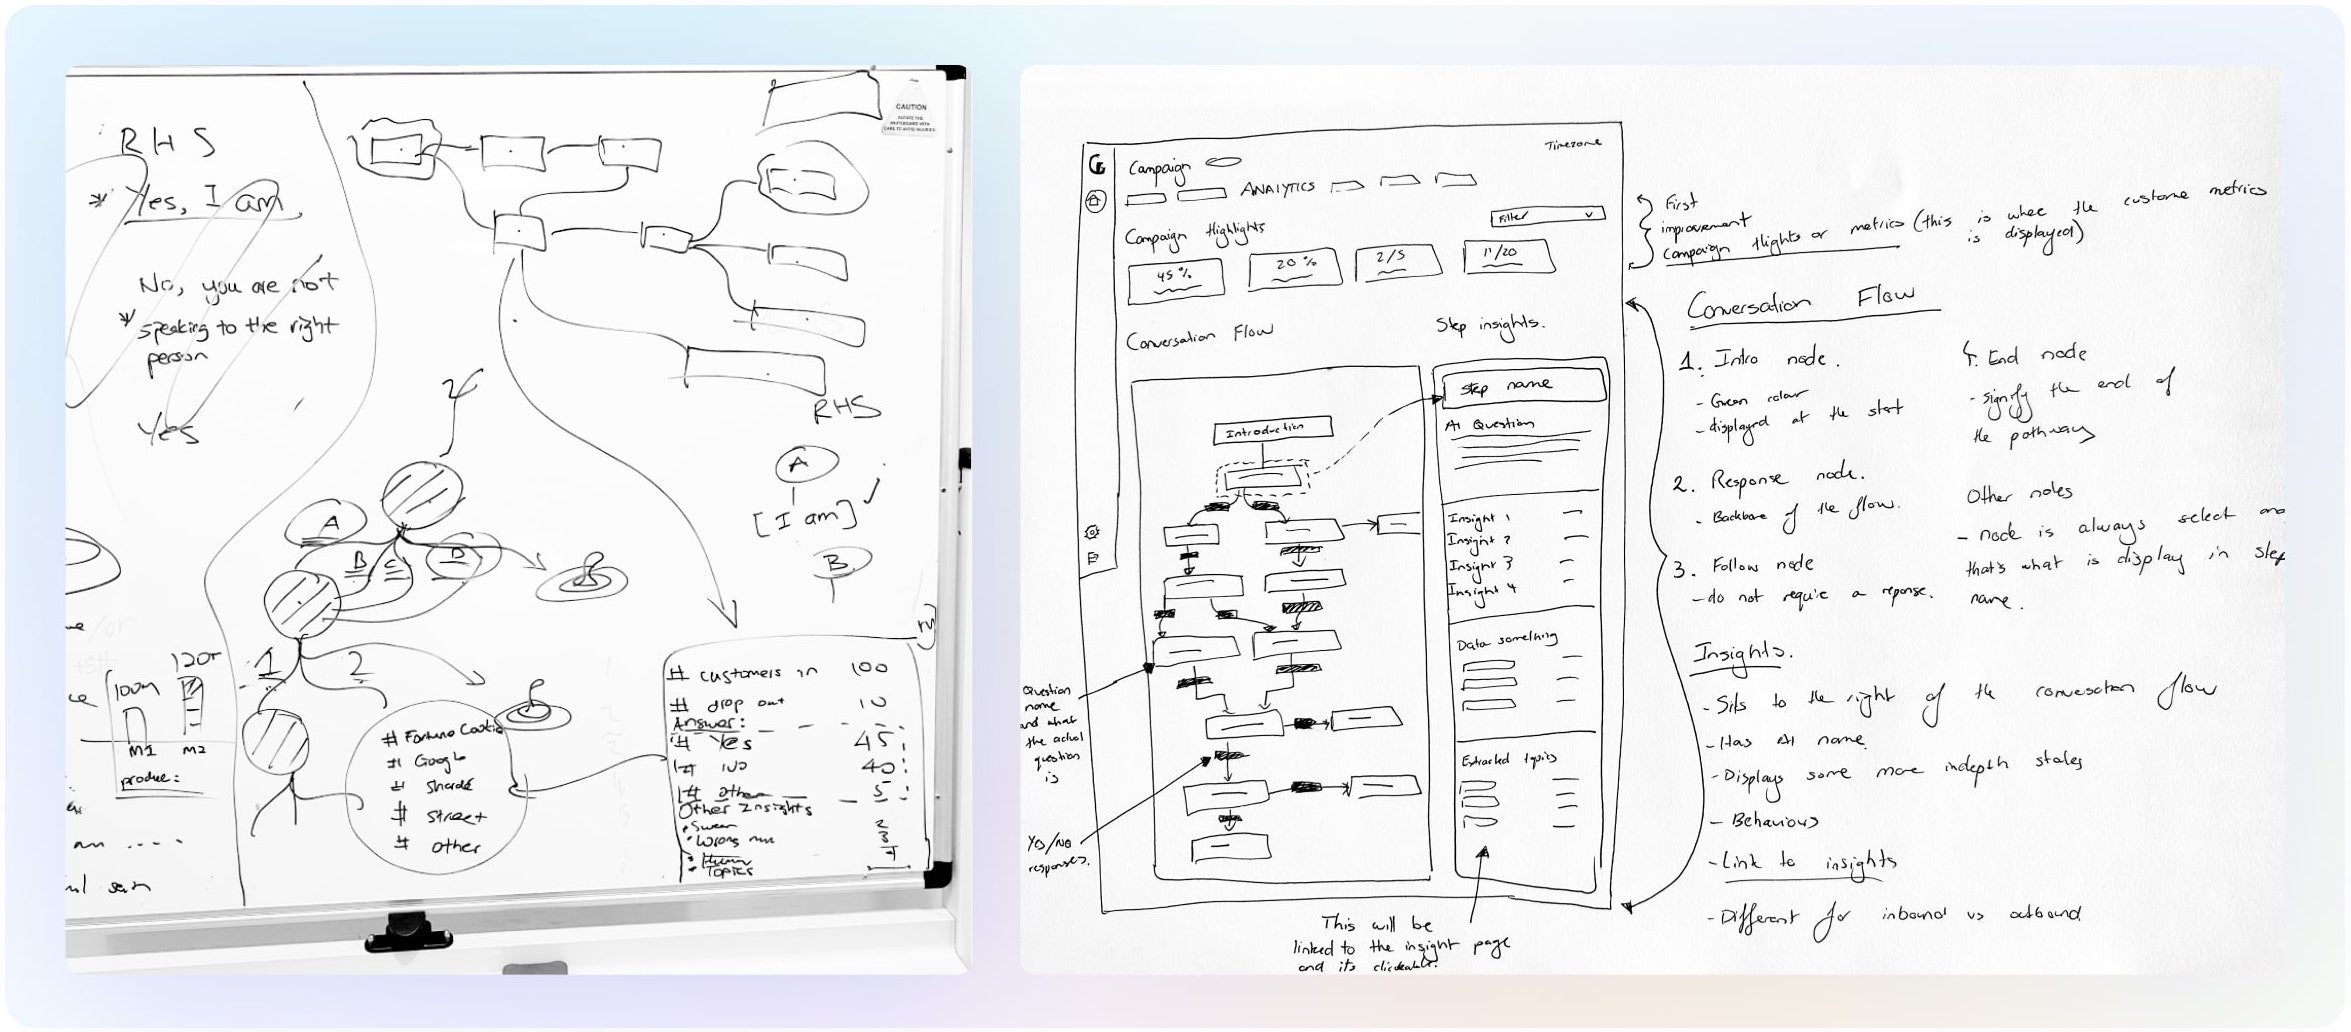 RHS
* Yes, I am
No, you are not
* speaking to the right
person
Yes
CAUTION
ROTATE THE
WHITEBOARD WITH
CARE TO AVOID INJURIES
RHS
A
[I am] ✓
B
A
B
C
D
1
2
120+
100m
M1
M2
produce:
an ....
# Fortune Cookie
# Google
# Street
# other
# customers in 100
# drop out 10
Answer:
# Yes 45
# No 40
# other 5
Other Insights
• Swear 2
• Wrong num 3
• Topics
Timezone
Campaign
ANALYTICS
Campaign Highlights
Filter
45%
20%
2/5
11/20
Conversation Flow
Step insights.
Introduction
Step name
AI Question
Insight 1
Insight 2
Insight 3
Insight 4
Data something
Extracted topics
Question
name
and what
the actual
question
is
Yes/No
responses.
This will be
linked to the insight page
and its clickable.
First
improvement
Campaign Hights or metrics (this is whee the custome metrics
is displayed)
Conversation Flow
1. Intro node.
- Green colour
- displayed at the start
2. Response node.
- Backbone of the flow.
3. Follow node
- do not require a reponse.
4. End node
- signify the end of
the pathway
Other notes
- node is always select and
that's what is display in step
name.
Insights.
- Sits to the right of the conversation flow
- Has AI name
- Displays some more indepth states
- Behaviours
- Link to insights
- Different for inbound vs outbound